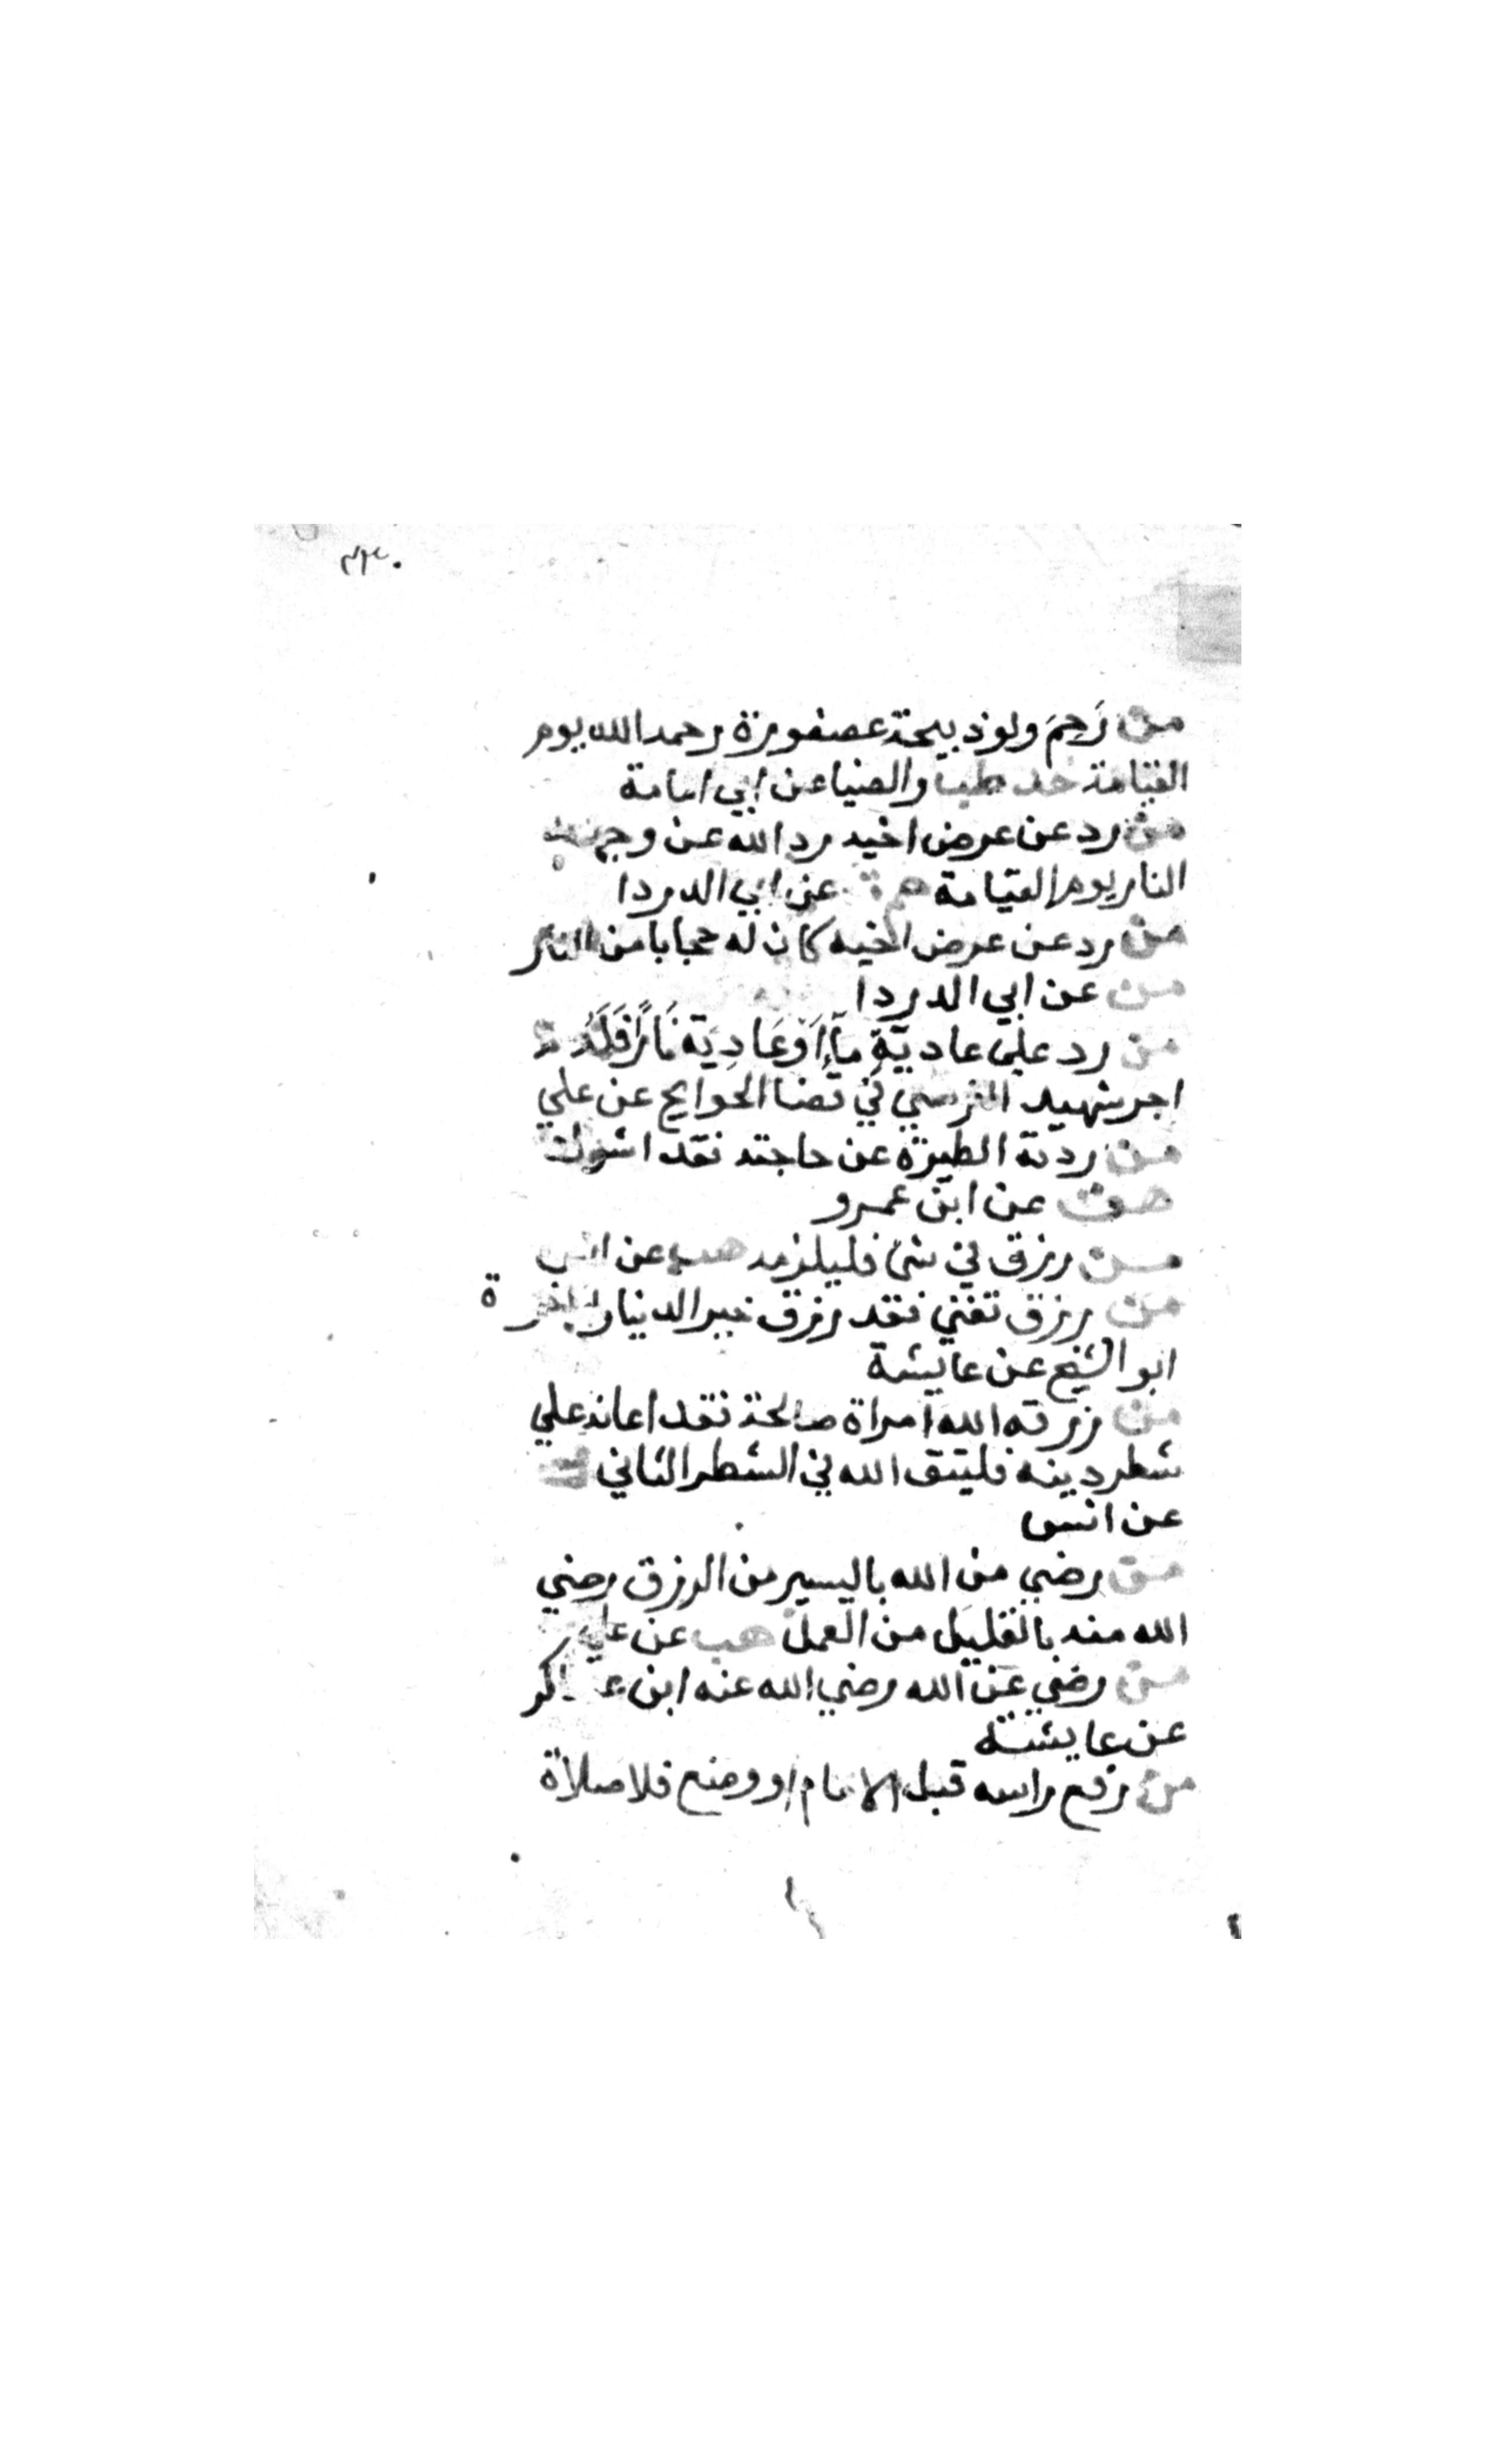 ٢٣٠
من رَحِمَ ولو ذبيحة عصفورة رحمه الله يوم
القيامة خد طب والضيا عن ابي امامة
من رد عن عرض اخيه رد الله عن وجهه
النار يوم القيامة حم ت عن ابي الدردا
من رد عن عرض اخيه كان له حجابا من النار
عن ابي الدردا
من رد على عادية مآء اَوْ عَادِيَة نَارًا فَلَهُ
اجر شهيد النرسي في قضا الحوايج عن علي
من ردته الطيرة عن حاجته فقد اشرك
عن ابن عمرو
من رزق في شئ فليلزمه هب عن انس
من رزق تقني فقد رزق خير الدنيا والاخرة
ابو الشيخ عن عايشة
من رزقه الله امراة صالحة فقد اعانه علي
شطر دينه فليتق الله في الشطر الثاني
عن انس
من رضي من الله باليسير من الرزق رضي
الله منه بالقليل من العمل هب عن علي
من رضي عن الله رضي الله عنه ابن عساكر
عن عايشة
من رفع راسه قبل الامام او وضع فلا صلاة